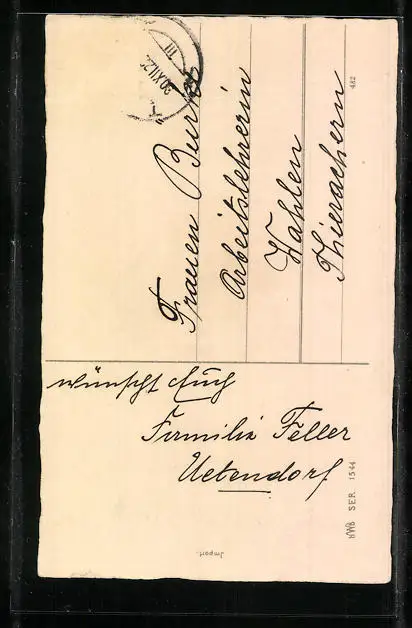 wünscht Euch
Familie Feller
Uetendorf
Frauen Burk
Arbeitslehrerin
Wahlen
Thierachern
30.XII.2
III
482
HWB SER 1544
Import.